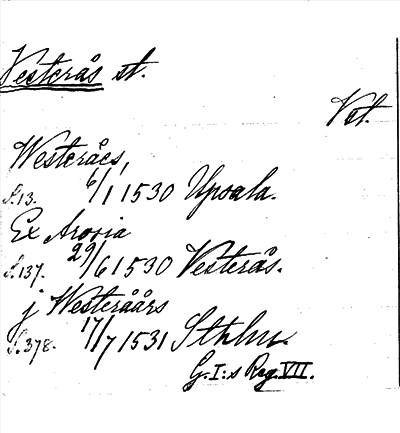 Vesterås st.
Vst.
Westeråes,
S. 13. 6/1 1530 Upsala.
Ex Arosia
S. 137. 29/6 1530 Vesterås.
j Westeråårs
S. 378. 17/7 1531 Sthlm.
G. I:s Reg. VII.